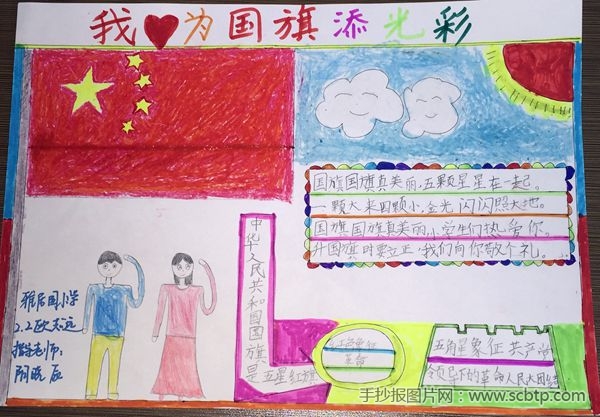 我为国旗添光彩
国旗国旗真美丽,五颗星星在一起。
一颗大来四颗小,金光闪闪照大地。
国旗国旗真美丽,小学生们热爱你。
升国旗时要立正,我们向你敬个礼。
中华人民共和国国旗是五星红旗
雅居园小学
2.2欧志远
指导老师:
象征
革命
五角星象征共产党
领导下的革命人民大团结
手抄报图片网·www.scbtp.com